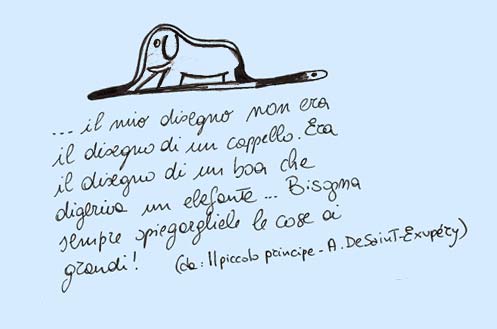 ... il mio disegno non era
il disegno di un cappello. Era
il disegno di un boa che
digeriva un elefante... Bisogna
sempre spiegargliele le cose ai
grandi!
(da: Il piccolo principe - A. De Saint-Exupéry)